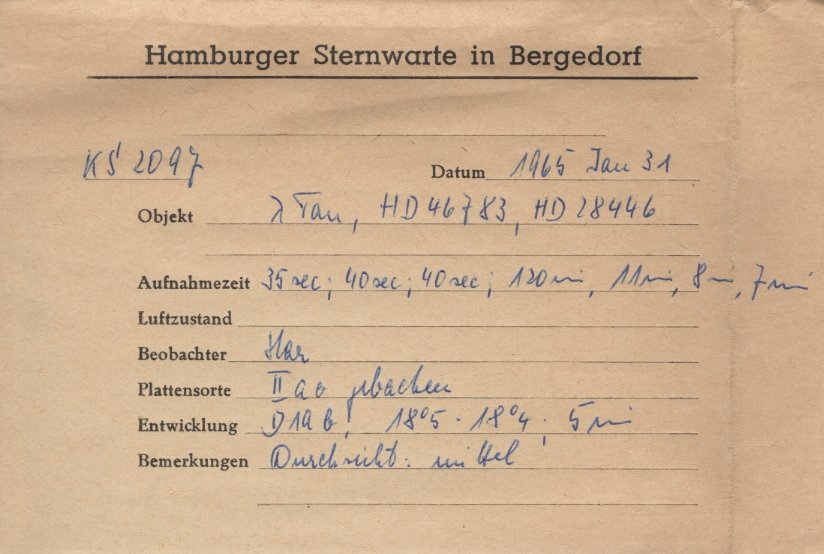 Hamburger Sternwarte in Bergedorf
KŚ 2097 Datum 1965 Jan 31
Objekt λ Tau, HD 46783, HD 28446
Aufnahmezeit 35sec; 40sec; 40sec; 120min, 11min, 8min, 7min
Luftzustand
Beobachter Har
Plattensorte II a o gebacken
Entwicklung D19b, 18°5 - 18°4, 5min
Bemerkungen Durchsicht: mittel